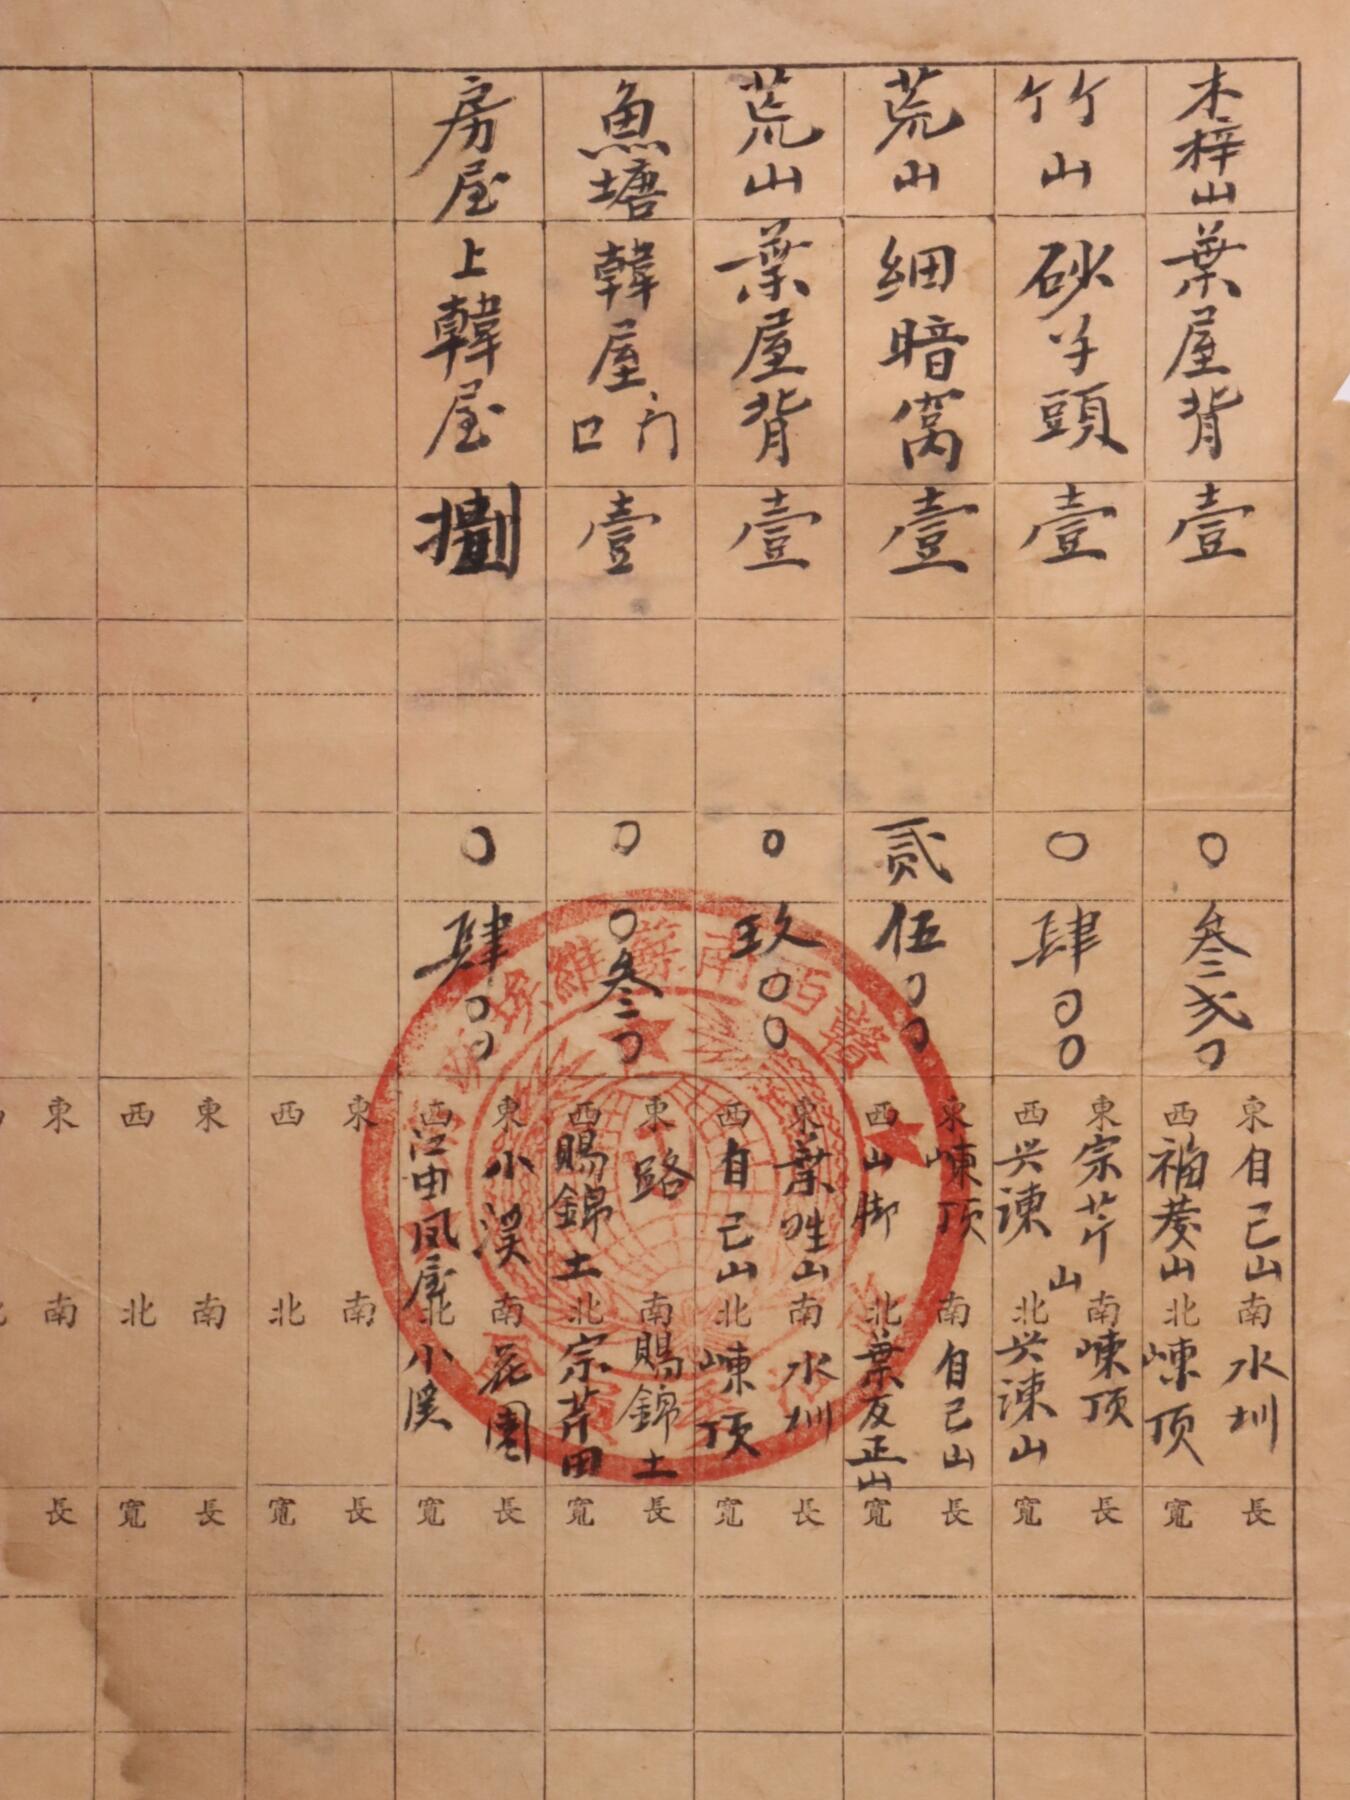 木梓山 葉屋背 壹 〇 叁弍〇 東 自己山 南 水圳 西 福茂山 北 崠頂 長 寬
竹山 砂羊頭 壹 〇 肆〇〇 東 宗芹山 南 崠頂 西 兴諌 北 兴諌山 長 寬
荒山 細暗窩 壹 贰 伍〇〇 東 崠頂 南 自己山 西 山脚 北 葉友正山 長 寬
荒山 葉屋背 壹 〇 玖〇〇 東 葉姓山 南 水圳 西 自己山 北 崠頂 長 寬
魚塘 韓屋門口 壹 〇 〇叁〇 東 路 南 賜錦土 西 賜錦土 北 宗芹田 長 寬
房屋 上韓屋 捌 〇 肆〇〇 東 小溪 南 花園 西 江田凤屋 北 小溪 長 寬
東 南 西 北 長 寬
東 南 西 北 長 寬
東 南 長
贛西南蘇維埃政府